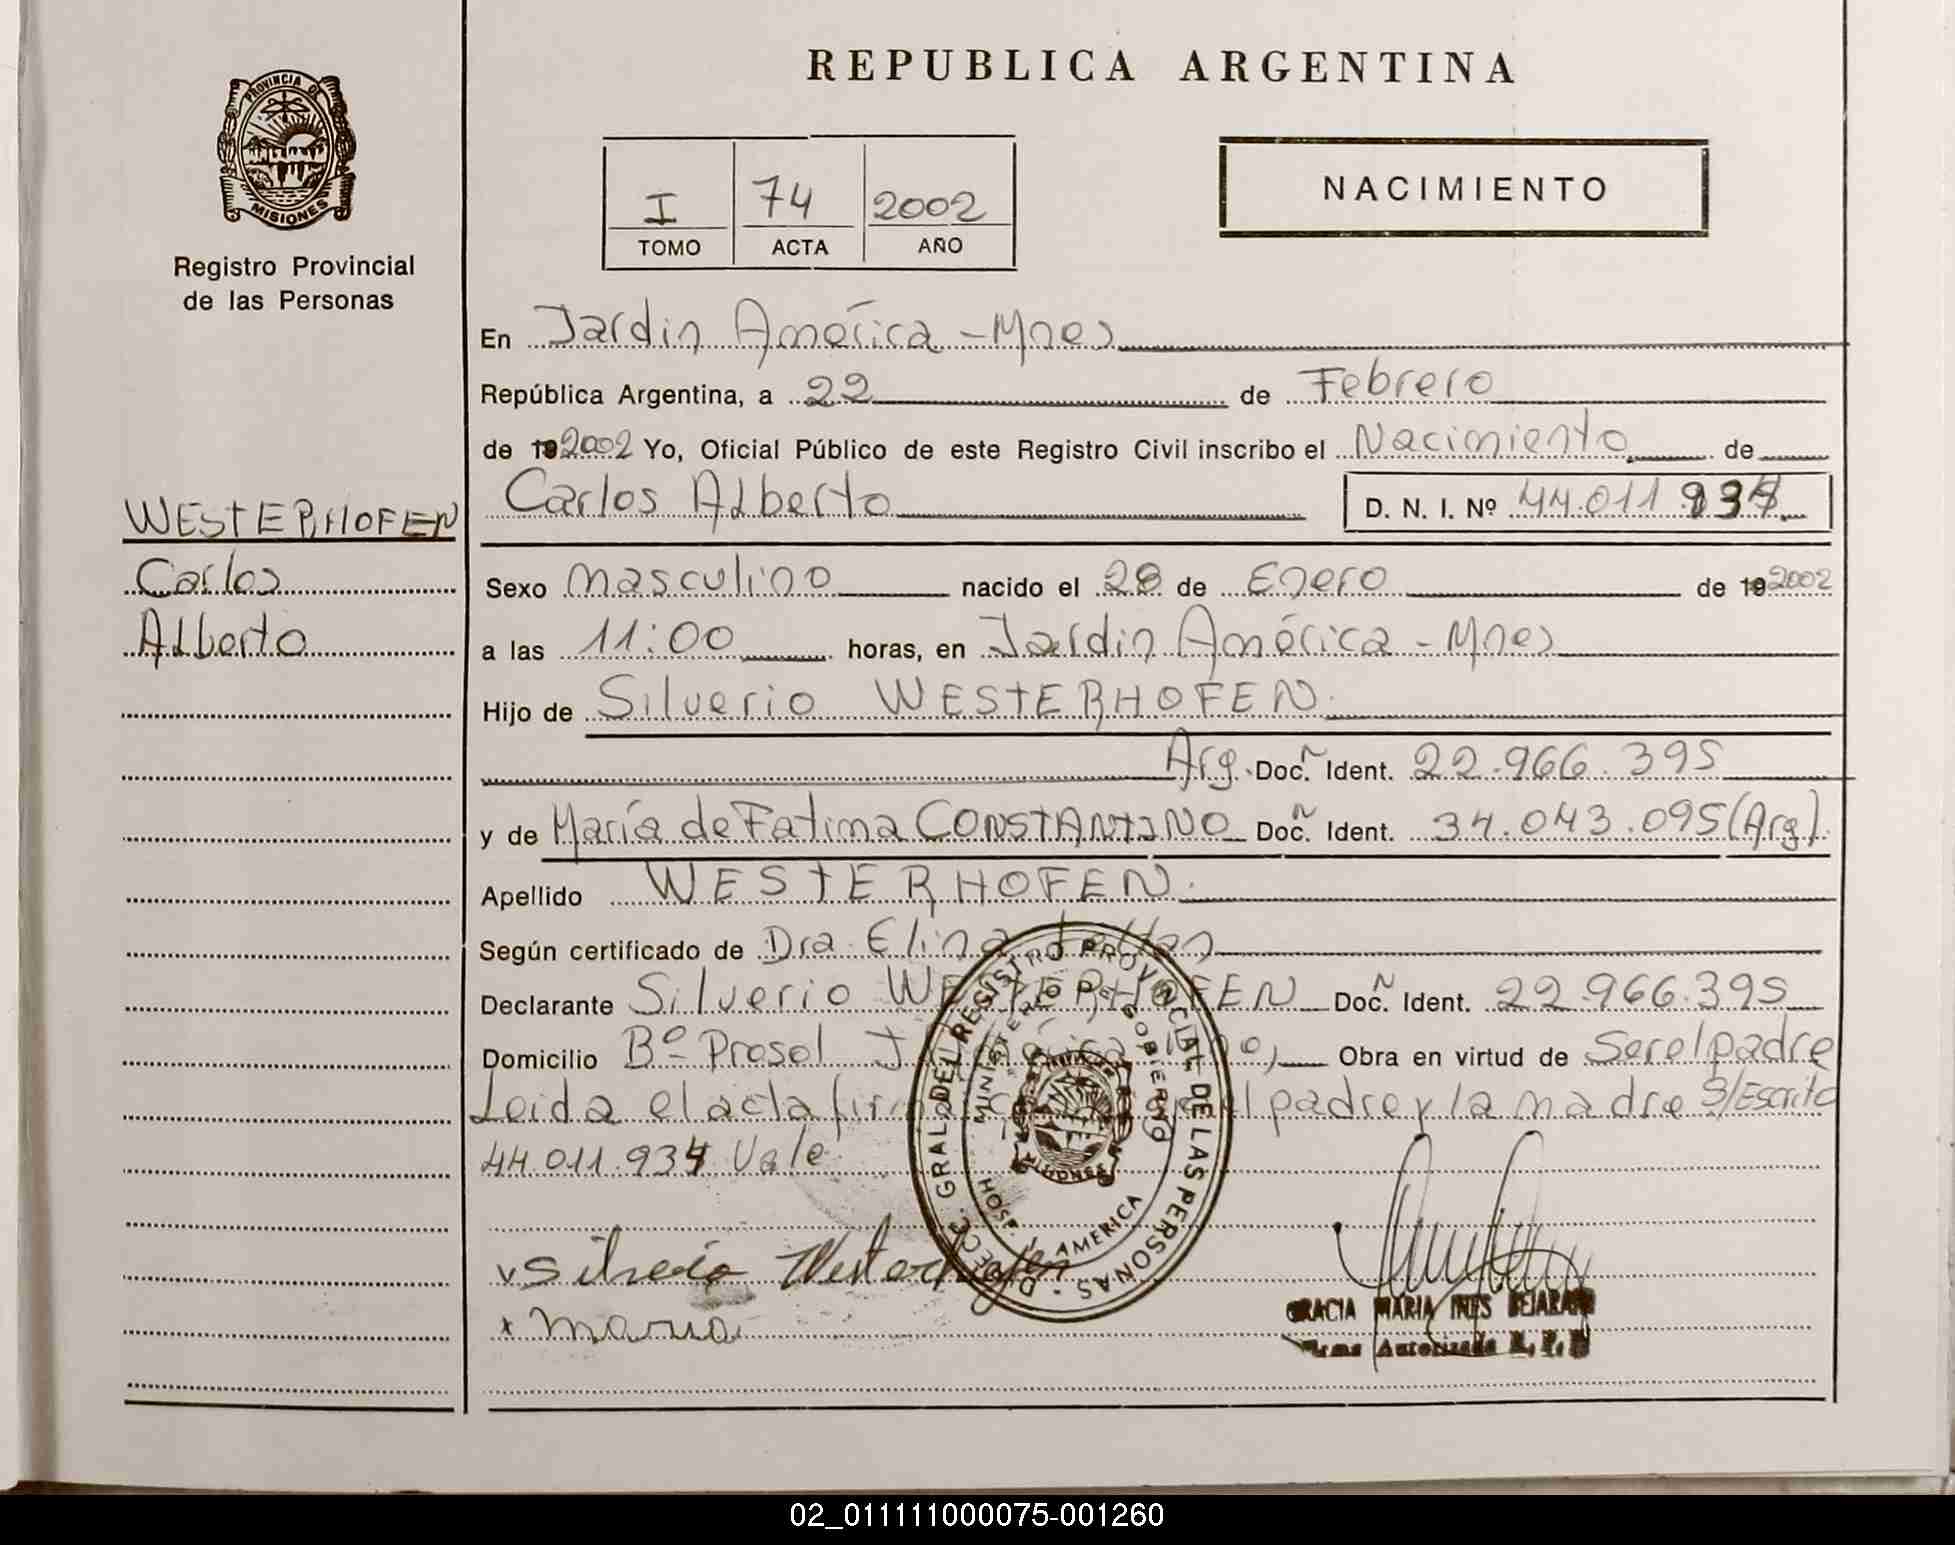 REPUBLICA ARGENTINA
PROVINCIA DE
MISIONES
Registro Provincial
de las Personas
I 74 2002
TOMO ACTA AÑO
NACIMIENTO
En Jardin América - Mnes
República Argentina, a 22 de Febrero
de 19 2002 Yo, Oficial Público de este Registro Civil inscribo el Nacimiento de
Carlos Alberto D. N. I. Nº 44.011.934
WESTERHOFEN
Carlos
Alberto
Sexo masculino nacido el 28 de Enero de 19 2002
a las 11:00 horas, en Jardin América - Mnes
Hijo de Silverio WESTERHOFEN
Arg. Doc. Ident. 22.966.395
y de María de Fatima CONSTANTINO Doc. Ident. 34.043.095 (Arg).
Apellido WESTERHOFEN.
Según certificado de Dra. Elina
Declarante Silverio WESTERHOFEN Doc. Ident. 22.966.395
Domicilio Bº Prosol Obra en virtud de Ser el padre
Leida el acta el padre y la madre S/Escrito
44.011.934 Vale
DIRECC. GRAL. DEL REGISTRO PROVINCIAL DE LAS PERSONAS
MINISTERIO DE GOBIERNO
HOSP. J. AMERICA
MISIONES
Silverio Westerhofen
x Maria
GRACIA MARIA INES BEJARANO
Firma Autorizada R. P. P.
02_011111000075-001260